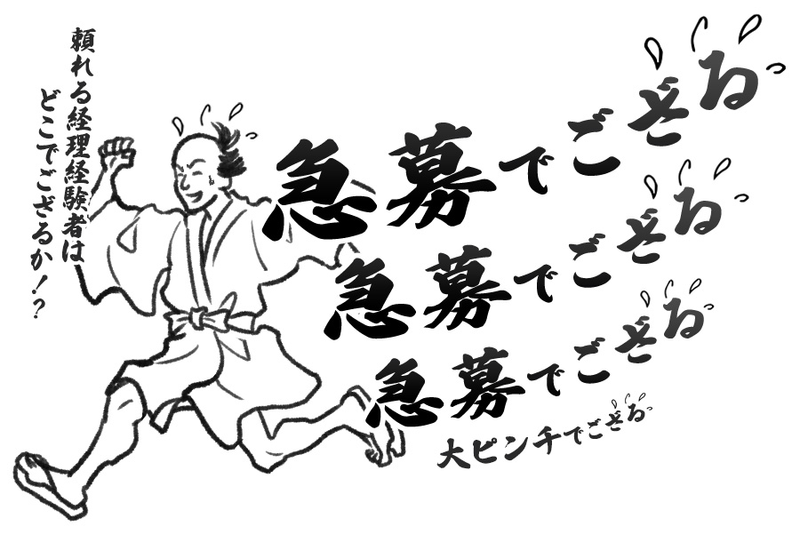 頼れる経理経験者は
どこでござるか！?
急募でござる
急募でござる
急募でござる
大ピンチでござる